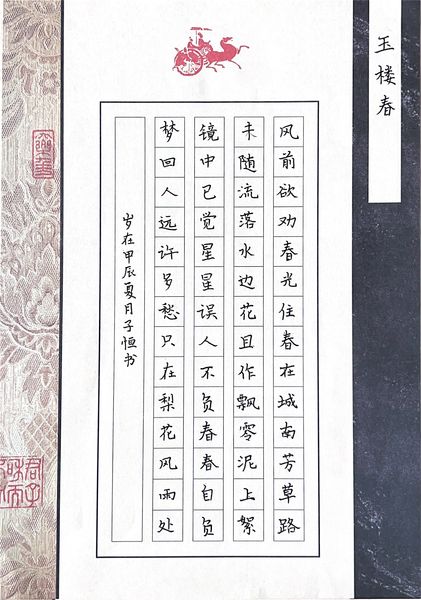 玉楼春
风前欲劝春光住春在城南芳草路
未随流落水边花且作飘零泥上絮
镜中已觉星星误人不负春春自负
梦回人远许多愁只在梨花风雨处
岁在甲辰夏月子恒书